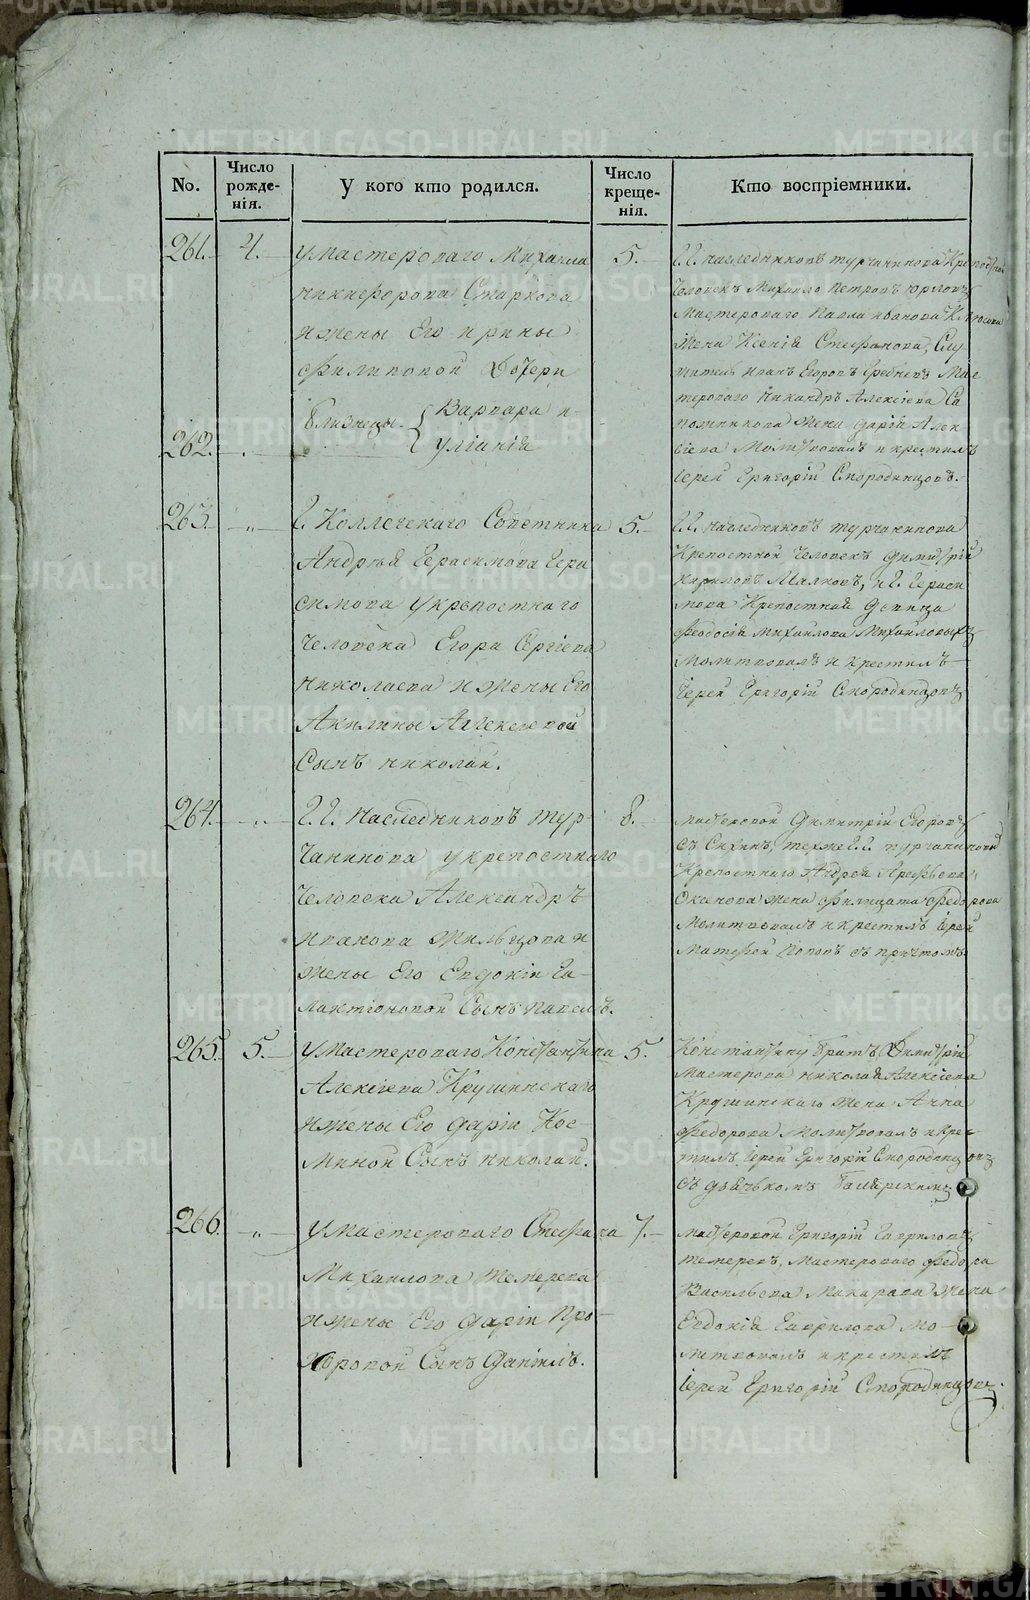 No.
Число рожде-нія.
У кого кто родился.
Число креще-нія.
Кто воспріемники.
261. 4. у мастероваго Михаила 5.
никифорова Старкова
и жены Его ирины
филиповой дочери
Близнецы Варвара и
262. Улiанiя
Г.Г. наследниковъ турчанинова Крепостной
человекъ Михайло Петровъ юрловъ
Мастероваго Павла иванова
жена Ксенiя Стефанова, Слу
житель иванъ Егоровъ Гребневъ Мас
тероваго Никандръ Алексiева Са
пожникова жена дарiя Алек
сiева Молитвовалъ и крестилъ
Iерей Григорiй Смородинцовъ.
263. „ Г. Коллегскаго Советника 5.
Андрея Герасимова Гера
симова у крепостнаго
человека Егора Сергiева
николаева и жены Его
Акилины Алексiевой
Сынъ николай.
Г.Г. наследниковъ турчанинова
Крепостной человекъ димитрiй
кириловъ Малковъ, и Г. Гераси
мова Крепостная девица
феодосiя михайлова Михайловыхъ
молитвовалъ и крестилъ
Iерей Григорiй Смородинцовъ
264. „ Г.Г. Наследниковъ тур 8.
чанинова у крепостнаго
человека Александръ
иванова жильцова и
жены Его Евдокiи Га-
лактiоновой Сынъ павелъ.
мастеровой Димитрiй Егоровъ
Крепостнаго Андрея Арефьева
жена филицата федорова
Молитвовалъ и крестилъ Iерей
Матфей Поповъ съ причтомъ
265. 5. у Мастероваго Константина 5.
Алексiева Крушинскаго
и жены Его дарiи Кос-
миной Сынъ николай.
Константину братъ, Димитрiй
Мастерова николая Алексiева
Крушинскаго жена Анна
федорова Молитвовалъ и кре-
тилъ Iерей Григорiй Смородинцовъ
съ дьячкомъ
266. „ у мастероваго Стефана 7.
Михаилова темерева
и жены Его дарiи Про-
хоровой Сынъ данiилъ.
мастеровой Григорiй Гавриловъ
темеревъ, мастероваго федора
Васильева Макарова жена
Евдокiя Гаврилова мо-
литвовалъ и крестилъ
Iерей Григорiй Смородинцовъ.
METRIKI.GASO-URAL.RU